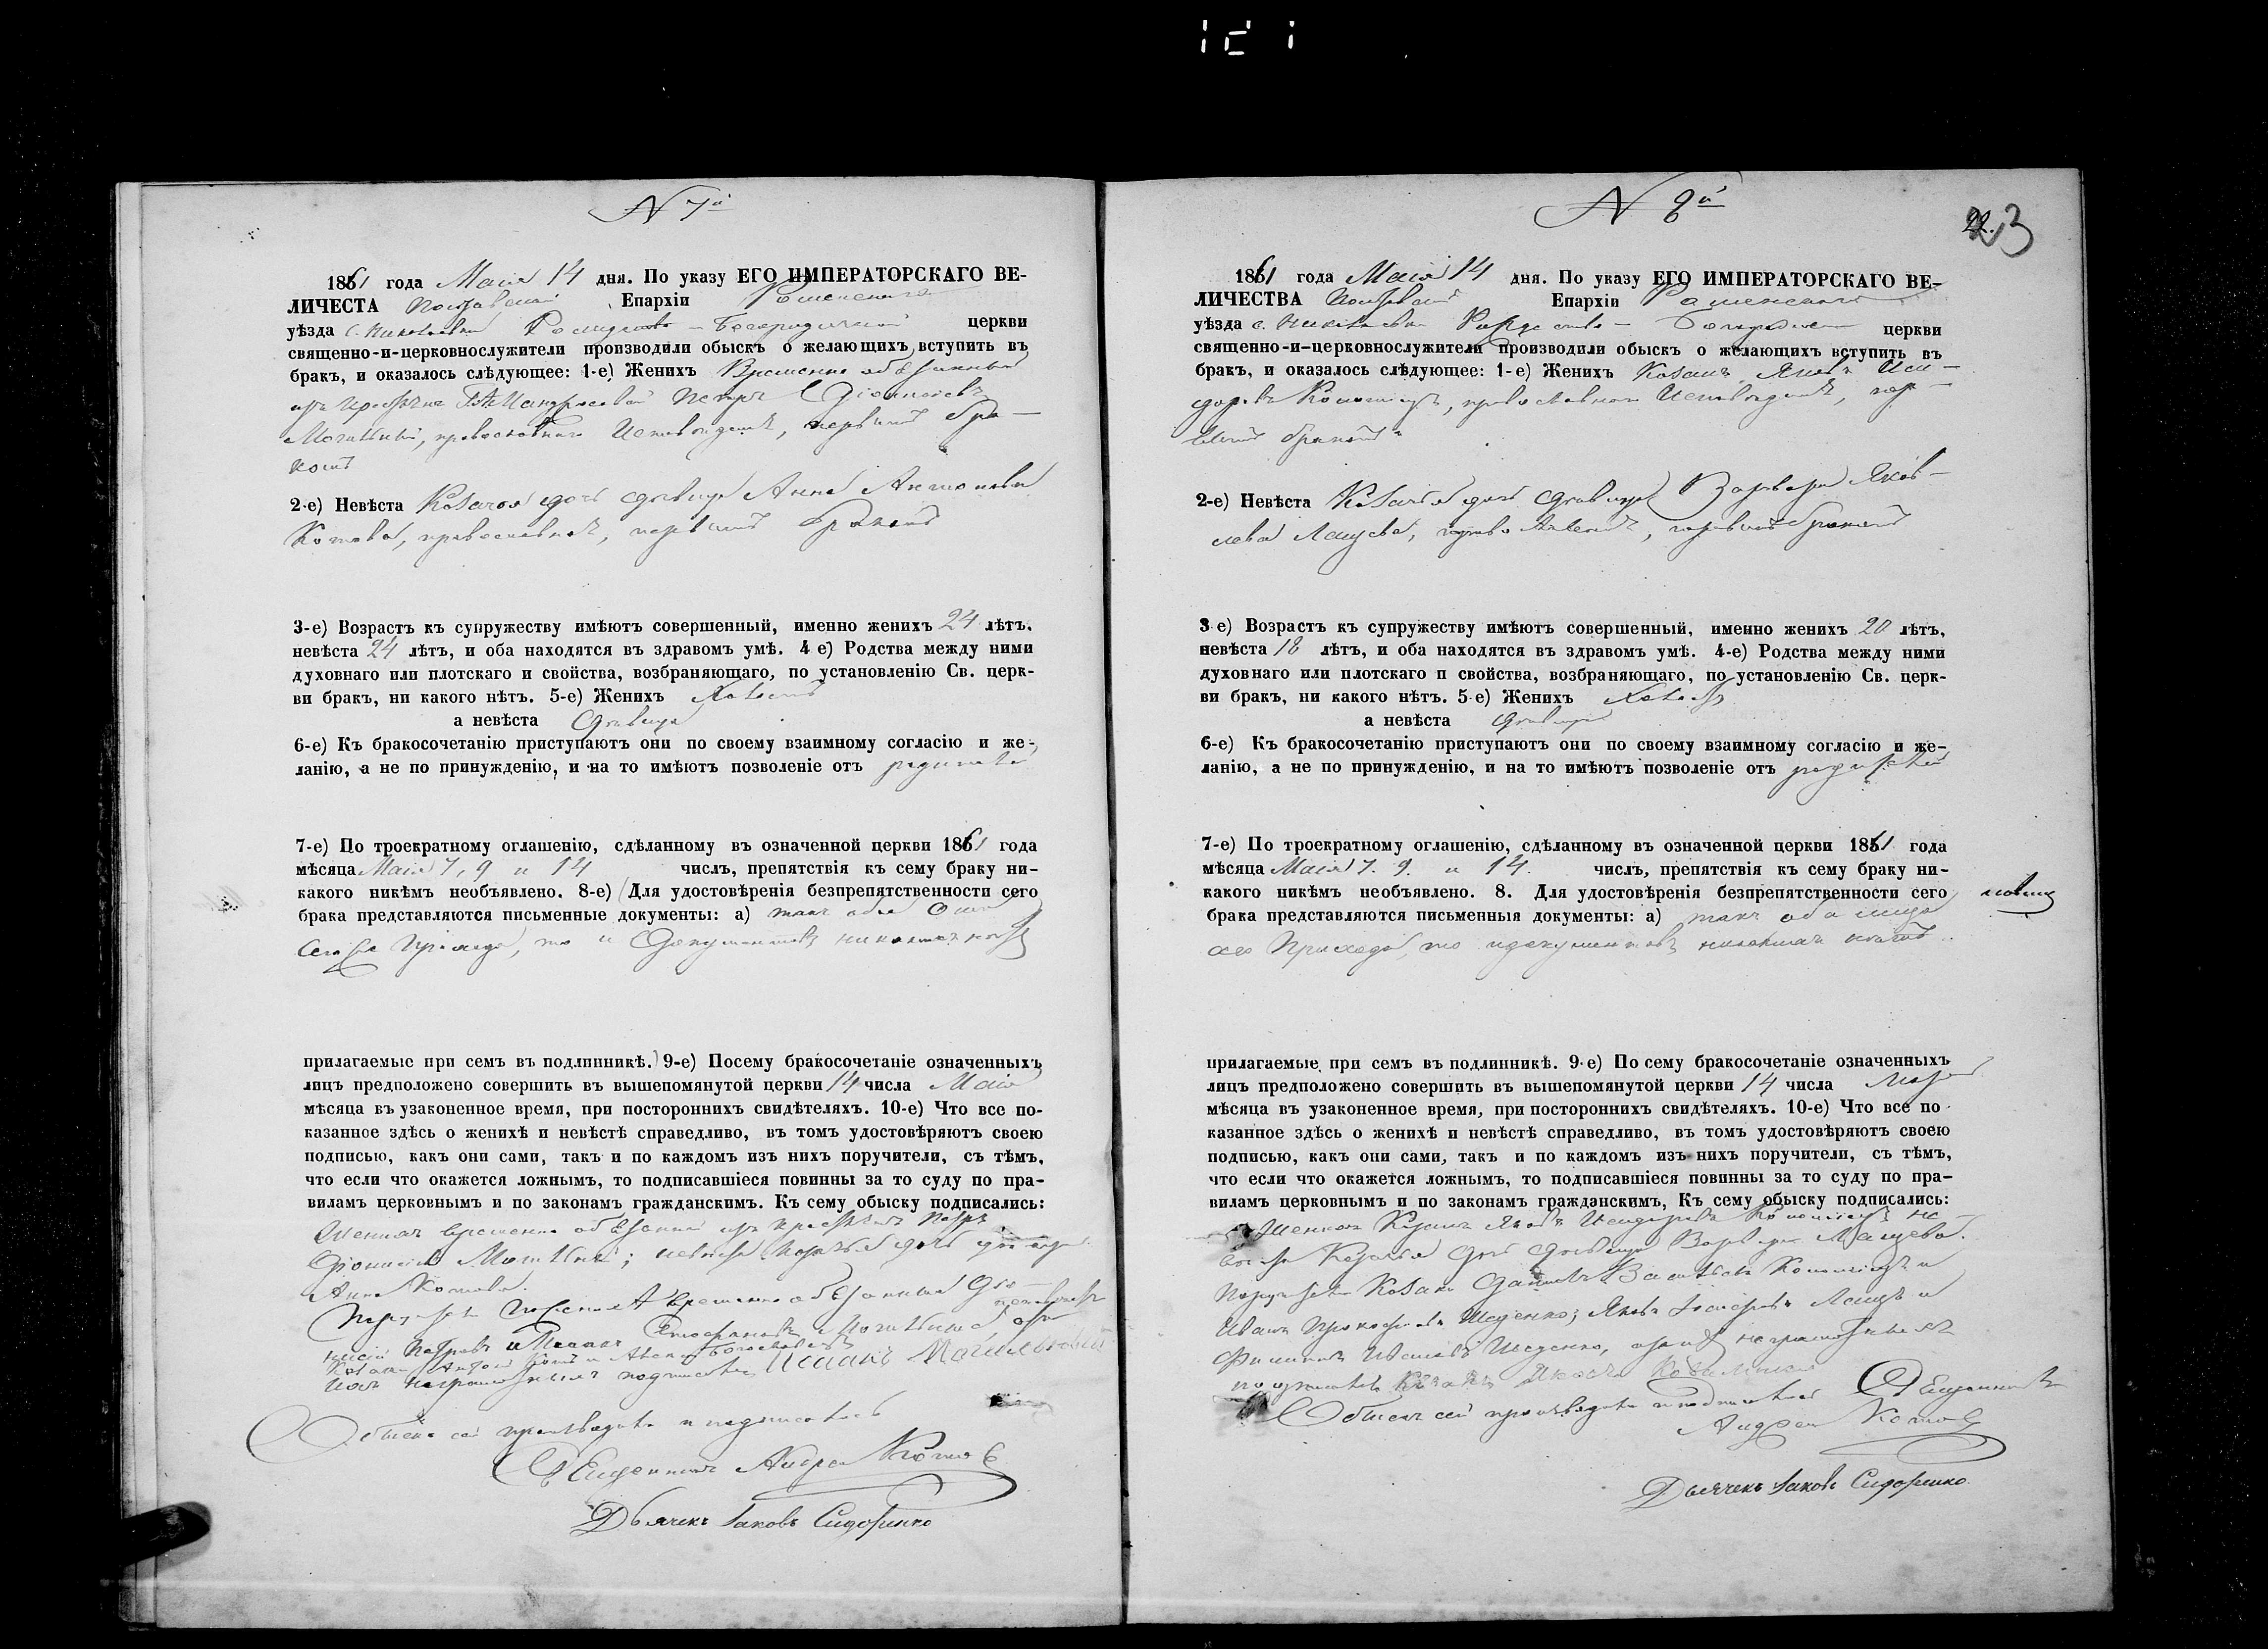 N 7й
1861 года Маія 14 дня. По указу ЕГО ИМПЕРАТОРСКАГО ВЕ-
ЛИЧЕСТА Полтавской Епархіи Роменскаго
уѣзда с. Николаевки Рождество-Богородичной церкви
священно-и-церковнослужители производили обыскъ о желающихъ вступить въ
бракъ, и оказалось слѣдующее: 1-е) Женихъ Временно обязанный
Петръ Діонисіевъ
Могильный, православнаго исповѣданія, первымъ бра-
комъ
2-е) Невѣста Козачья дочь дѣвица Анна Антонова
Котова, православная, первымъ бракомъ
3-е) Возрастъ къ супружеству имѣютъ совершенный, именно женихъ 24 лѣтъ.
невѣста 24 лѣтъ, и оба находятся въ здравомъ умѣ. 4 е) Родства между ними
духовнаго или плотскаго и свойства, возбраняющаго, по установленію Св. церк-
ви бракъ, ни какого нѣтъ. 5-е) Женихъ Холостъ
а невѣста Дѣвица
6-е) Къ бракосочетанію приступаютъ они по своему взаимному согласію и же-
ланію, а не по принужденію, и на то имѣютъ позволеніе отъ
7-е) По троекратному оглашенію, сдѣланному въ означенной церкви 1861 года
мѣсяца Маія 7, 9 и 14 числъ, препятствія къ сему браку ни-
какого никѣмъ необъявлено. 8-е) (Для удостовѣренія безпрепятственности сего
брака представляются письменные документы: а) такъ оба они
сего Прихода, то и документовъ никакихъ нѣтъ
прилагаемые при семъ въ подлинникѣ.) 9-е) Посему бракосочетаніе означенныхъ
лицъ предположено совершить въ вышепомянутой церкви 14 числа Маія
мѣсяца въ узаконенное время, при постороннихъ свидѣтеляхъ. 10-е) Что все по-
казанное здѣсь о женихѣ и невѣстѣ справедливо, въ томъ удостовѣряютъ своею
подписью, какъ они сами, такъ и по каждомъ изъ нихъ поручители, съ тѣмъ,
что если что окажется ложнымъ, то подписавшіеся повинны за то суду по пра-
виламъ церковнымъ и по законамъ гражданскимъ. Къ сему обыску подписались:
Женихъ временно обязанный Петръ
Діонисіевъ Могильный; невѣста козачья дочь дѣвица
Анна Котова.
временно обязанные
Обыскъ сей производилъ и подписалъ
Священникъ Андрей Котовъ
Дьячекъ Іаковъ Сидоренко
N 8й
22. 23
1861 года Маія 14 дня. По указу ЕГО ИМПЕРАТОРСКАГО ВЕ-
ЛИЧЕСТВА Полтавской Епархіи Роменскаго
уѣзда с. Николаевки Рождество-Богородичной церкви
священно-и-церковнослужители производили обыскъ о желающихъ вступить въ
бракъ, и оказалось слѣдующее: 1-е) Женихъ Козакъ Яковъ Иси-
доровъ Коломіецъ, православнаго исповѣданія, пер-
вымъ бракомъ
2-е) Невѣста Козачья дочь дѣвица Варвара Яков-
лева Лащева, православная, первымъ бракомъ
3 е) Возрастъ къ супружеству имѣютъ совершенный, именно женихъ 20 лѣтъ,
невѣста 18 лѣтъ, и оба находятся въ здравомъ умѣ. 4-е) Родства между ними
духовнаго или плотскаго п свойства, возбраняющаго, по установленію Св. церк-
ви бракъ, ни какого нѣтъ. 5-е) Женихъ Холостъ
а невѣста дѣвица
6-е) Къ бракосочетанію приступаютъ они по своему взаимному согласію и же-
ланію, а не по принужденію, и на то имѣютъ позволеніе отъ родителей
7-е) По троекратному оглашенію, сдѣланному въ означенной церкви 1861 года
мѣсяца Маія 7. 9. и 14. числъ, препятствія къ сему браку ни-
какого никѣмъ необъявлено. 8. Для удостовѣренія безпрепятственности сего
брака представляются письменныя документы: а) такъ оба лица
сего Прихода, то и документовъ никакихъ нѣтъ
прилагаемые при семъ въ подлинникѣ. 9-е) По сему бракосочетаніе означенныхъ
лицъ предположено совершить въ вышепомянутой церкви 14 числа
мѣсяца въ узаконенное время, при постороннихъ свидѣтеляхъ. 10-е) Что все по
казанное здѣсь о женихѣ и невѣстѣ справедливо, въ томъ удостовѣряютъ своею
подписью, какъ они сами, такъ и по каждомъ изъ нихъ поручители, съ тѣмъ,
что если что окажется ложнымъ, то подписавшіеся повинны за то суду по пра-
виламъ церковнымъ и по законамъ гражданскимъ, Къ сему обыску подписались:
Женихъ Козакъ Яковъ Исидоровъ Коломіецъ не-
вѣста Козачья дочь дѣвица Варвара Лащева.
Козаки Даніилъ Васильевъ Коломіецъ и
Иванъ Прокофіевъ Ищенко; Яковъ Лащъ и
Филиппъ Ивановъ Ищенко, а за нихъ неграмотныхъ
Обыскъ сей производилъ и подписалъ Священникъ
Андрей Котовъ
Дьячекъ Іаковъ Сидоренко